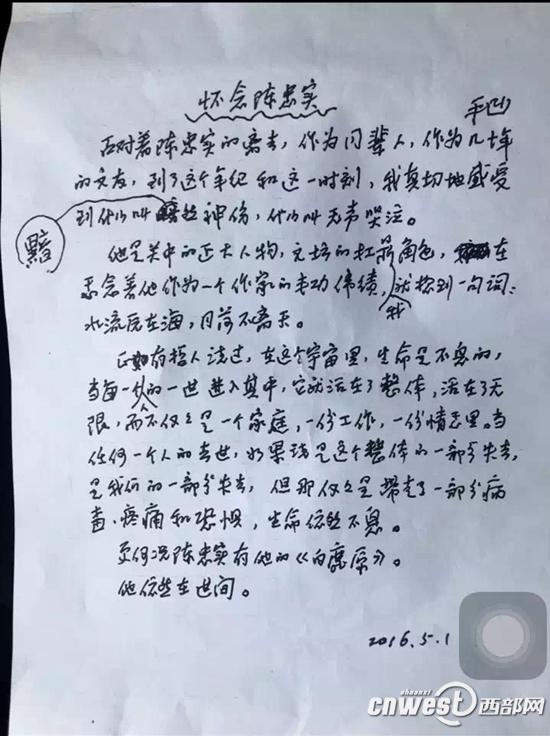 怀念陈忠实
平凹
面对着陈忠实的离去，作为同辈人，作为几十年
的文友，到了这个年纪和这一时刻，我真切地感受
到什么叫黯然神伤，什么叫无声哭泣。
他是关中的正大人物，文坛的扛鼎角色，在
思念着他作为一个作家的丰功伟绩，我想到一句词：
水流原在海，月落不离天。
正如有哲人说过，在这个宇宙里，生命是不息的，
当每一个人的一世进入其中，它就活在了整体，活在了无
限，而不仅仅是一个家庭，一份工作，一份情志里。当
任何一个人的去世，如果说是这个整体的一部分失去，
是我们的一部分失去，但那仅仅是带走了一部分病
毒、疼痛和恐惧，生命依然不息。
更何况陈忠实有他的《白鹿原》。
他依然在世间。
2016.5.1
shaanxi
cnwest西部网